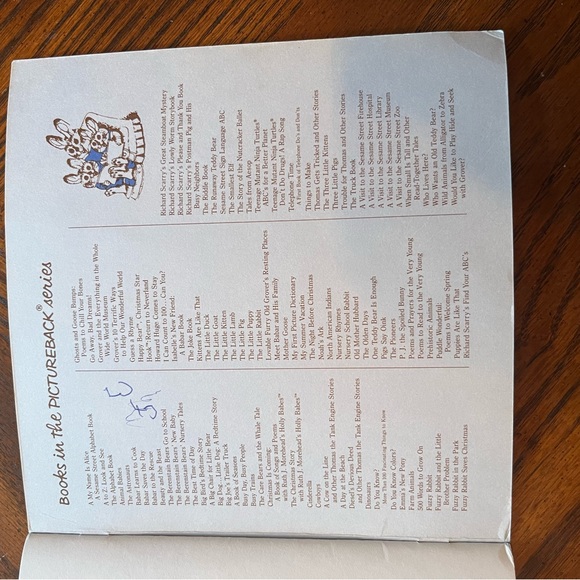 Books in the PICTUREBACK® series
A Bug Named Nice
A Sesame Street Alphabet Book
A to Z: Look and See
The Alphabet Book
Animal Babies
The Astronauts
Babar Learns to Cook
Babar Saves the Day
Babar to the Rescue
Beauty and the Beast
The Berenstain Bears Go to School
The Berenstain Bears' New Baby
The Berenstain Bears' Nursery Tales
The Best Time of Day
Big Bird's Bedtime Story
A Big Chair for Little Bear
Big Dog...Little Dog: A Bedtime Story
Big Joe's Trailer Truck
A Book of Seasons
Busy Day, Busy People
Busy Trains
The Care Bears and the Whale Tale
Christmas Is Coming:
A Book of Songs and Poems
with Ruth J. Morehead's Holly Babes™
The Christmas Story
with Ruth J. Morehead's Holly Babes™
Cinderella
Cowboys
A Cow on the Line
and Other Thomas the Tank Engine Stories
A Day at the Beach
Diesel's Devious Deed
and Other Thomas the Tank Engine Stories
Dinosaurs
Do You Know?
More Than 100 Fascinating Things to Know
Do You Know Colors?
Emma's New Pony
Farm Animals
500 Words to Grow On
Fuzzy Rabbit
Fuzzy Rabbit and the Little
Brother Problem
Fuzzy Rabbit in the Park
Fuzzy Rabbit Saves Christmas
Ghosts and Goose Bumps:
Poems to Chill Your Bones
Go Away, Bad Dreams!
Grover and the Everything in the Whole
Wide World Museum
Grover's 10 Terrific Ways
to Help Our Wonderful World
Guess a Rhyme
Happy Bear™, Christmas Star
Hook™: Return to Neverland
Howard Rabbit Comes to Stay
I Can Count to 100... Can You?
Isabelle's New Friend:
A Babar Book
The Joke Book
Kittens Are Like That
The Little Duck
The Little Goat
The Little Kitten
The Little Lamb
The Little Pig
The Little Puppy
The Little Rabbit
Lovable Furry Old Grover's Resting Places
Meet Babar and His Family
Mother Goose
My First Picture Dictionary
My Summer Vacation
The Night Before Christmas
Noah's Ark
North American Indians
Nursery Rhymes
Nursery School Rabbit
Old Mother Hubbard
The Olden Days
One Teddy Bear Is Enough
Pigs Say Oink
The Pioneers
P. J. the Spoiled Bunny
Poems and Prayers for the Very Young
Poems to Read to the Very Young
Prehistoric Animals
Puddle Wonderful:
Poems to Welcome Spring
Puppies Are Like That
Richard Scarry's Find Your ABC's
Richard Scarry's Great Steamboat Mystery
Richard Scarry's Lowly Worm Storybook
Richard Scarry's Please and Thank You Book
Richard Scarry's Postman Pig and His
Busy Neighbors
The Riddle Book
The Runaway Teddy Bear
Sesame Street Sign Language ABC
The Smallest Elf
The Story of the Nutcracker Ballet
Tales from Aesop
Teenage Mutant Ninja Turtles®
ABC's for a Better Planet
Teenage Mutant Ninja Turtles®
Don't Do Drugs! A Rap Song
Telephone Time:
A First Book of Telephone Do's and Don'ts
Things to Make
Thomas Gets Tricked and Other Stories
The Three Little Kittens
Three Little Pigs
Trouble for Thomas and Other Stories
The Truck Book
A Visit to the Sesame Street Firehouse
A Visit to the Sesame Street Hospital
A Visit to the Sesame Street Library
A Visit to the Sesame Street Museum
A Visit to the Sesame Street Zoo
When Small Is Tall and Other
Read-Together Tales
Who Lives Here?
Who Wants an Old Teddy Bear?
Wild Animals from Alligator to Zebra
Would You Like to Play Hide and Seek
with Grover?